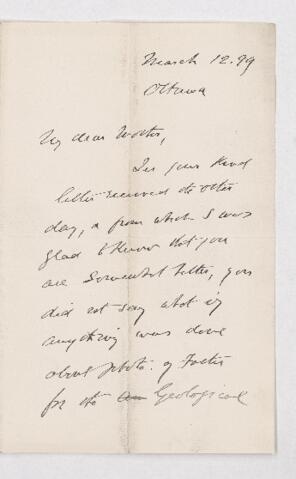 March 12. 99
Ottawa
My dear
In your kind
letter received the other
day, & from which I was
glad to know that you
are somewhat better, you
did not say what if
anything was done
about photo. of Foster
for the Geological